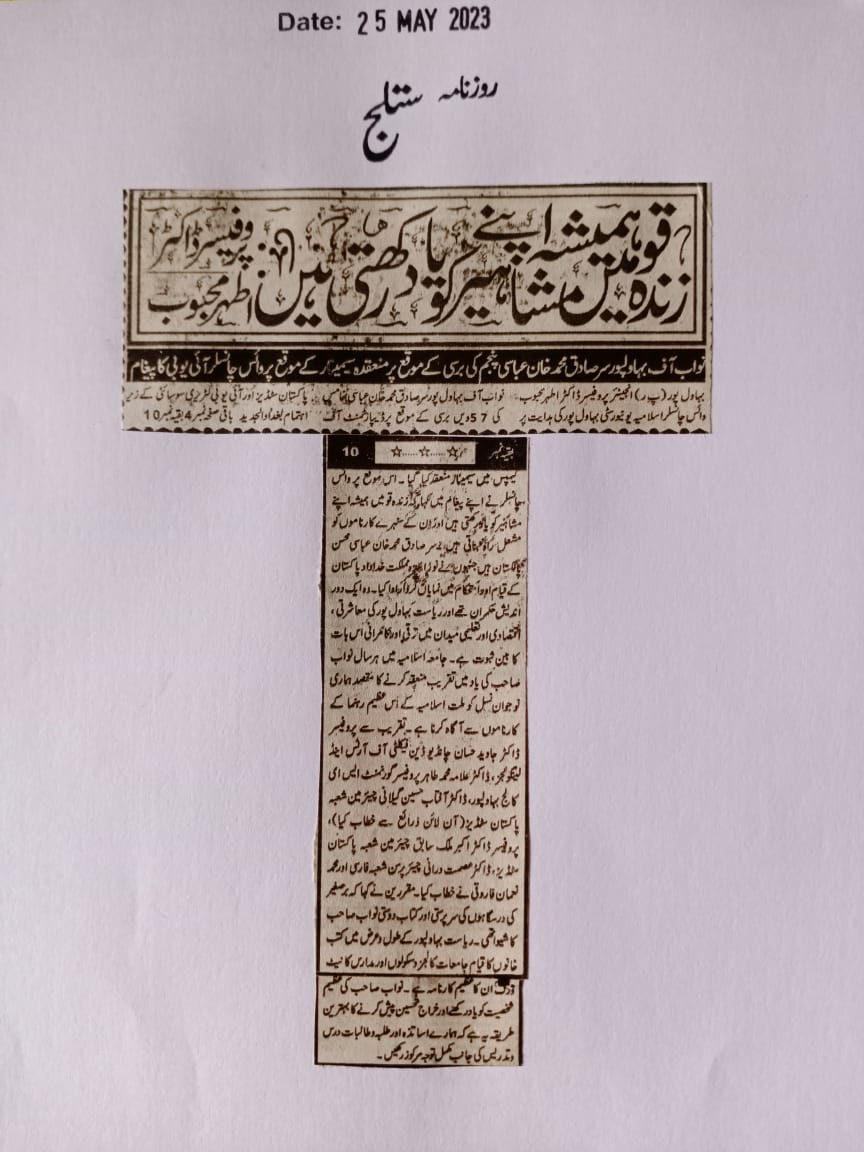 Date: 25 MAY 2023
روزنامہ ستلج
زندہ قومیں ہمیشہ اپنے مشاہیر کو یاد رکھتی ہیں: پروفیسر ڈاکٹر اطہر محبوب
نواب آف بہاولپور سر صادق محمد خان عباسی پنجم کی برسی کے موقع پر منعقدہ سیمینار کے موقع پر وائس چانسلر آئی یو بی کا پیغام
بہاول پور (پ ر) انجینئر پروفیسر ڈاکٹر اطہر محبوب
وائس چانسلر اسلامیہ یونیورسٹی بہاول پور کی ہدایت پر
نواب آف بہاول پور سر صادق محمد خان عباسی خامس
کی 57 ویں برسی کے موقع پر ڈیپارٹمنٹ آف
پاکستان سٹڈیز اور آئی یو بی لٹریری سوسائٹی کے زیر
اہتمام بغداد الجدید باقی صفحہ نمبر 4 بقیہ نمبر 10
بقیہ نمبر 10
کیمپس میں سیمینار منعقد کیا گیا۔ اس موقع پر وائس
چانسلر نے اپنے پیغام میں کہا کہ زندہ قومیں ہمیشہ اپنے
مشاہیر کو یاد رکھتی ہیں اور ان کے سنہرے کارناموں کو
مشعل راہ بناتی ہیں۔ سر صادق محمد خان عباسی محسن
پاکستان ہیں جنہوں نے مملکت خداداد پاکستان
کے قیام اور استحکام میں نمایاں کردار ادا کیا۔ وہ ایک دور
اندیش حکمران تھے اور ریاست بہاول پور کی معاشرتی،
اقتصادی اور تعلیمی میدان میں ترقی اور کامرانی اس بات
کا بین ثبوت ہے۔ جامعہ اسلامیہ میں ہر سال نواب
صاحب کی یاد میں تقریب منعقد کرنے کا مقصد ہماری
نوجوان نسل کو ملت اسلامیہ کے اس عظیم رہنما کے
کارناموں سے آگاہ کرنا ہے۔ تقریب سے پروفیسر
ڈاکٹر جاوید حسان چانڈیو ڈین فیکلٹی آف آرٹس اینڈ
لینگویجز، ڈاکٹر علامہ محمد طاہر پروفیسر گورنمنٹ ایس ای
کالج بہاولپور، ڈاکٹر آفتاب حسین گیلانی چیئرمین شعبہ
پاکستان سٹڈیز (آن لائن ذرائع سے خطاب کیا)،
پروفیسر ڈاکٹر اکبر ملک سابق چیئرمین شعبہ پاکستان
سٹڈیز، ڈاکٹر عصمت درانی چیئر پرسن شعبہ فارسی اور محمد
نعمان فاروقی نے خطاب کیا۔ مقررین نے کہا کہ برصغیر
کی درسگاہوں کی سرپرستی اور کتاب دوستی نواب صاحب
کا شیوا تھی۔ ریاست بہاولپور کے طول و عرض میں کتب
خانوں کا قیام جامعات کالجز و سکولوں اور مدارس کا نیٹ
ورک ان کا عظیم کارنامہ ہے۔ نواب صاحب کی عظیم
شخصیت کو یاد رکھنے اور خراج تحسین پیش کرنے کا بہترین
طریقہ یہ ہے کہ ہمارے اساتذہ اور طلبہ و طالبات درس
و تدریس کی جانب مکمل توجہ مرکوز رکھیں۔